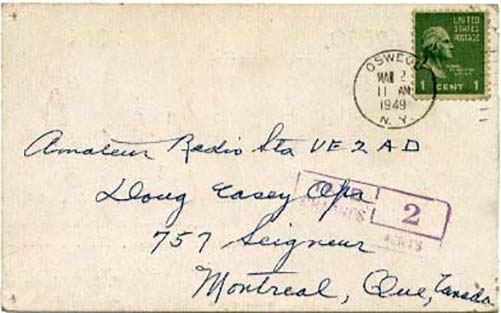 UNITED
STATES
POSTAGE
1 CENT 1
OSWEGO
MAR 2
11 AM
1949
N.Y.
Amateur Radio Sta VE2AD
Doug Casey Opr
2
CENTS
757 Seigneur
Montreal, Que, Canada